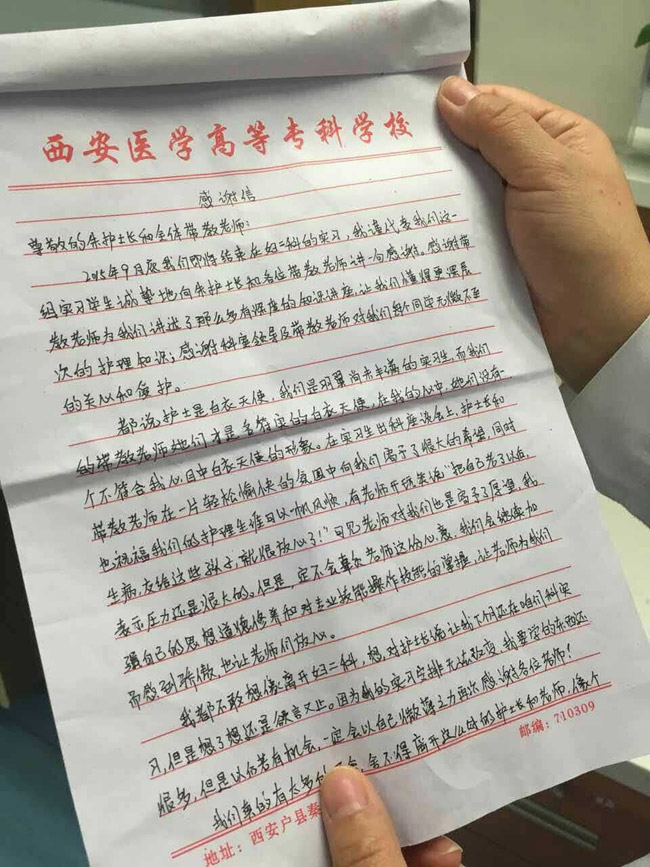 西安医学高等专科学校
感谢信
尊敬的余护士长和全体带教老师:
2015年9月底我们即将结束在妇二科的实习,我谨代表我们这一
组实习学生诚挚地向余护士长和各位带教老师讲一句感谢。感谢带
教老师为我们讲述了那么多有深度的知识讲座,让我们懂得更深层
次的护理知识;感谢科室领导及带教老师对我们每个同学无微不至
的关心和爱护。
都说护士是白衣天使,我们是羽翼尚未丰满的实习生,而我们
的带教老师她们才是名符实的白衣天使,在我的心中,她们没有一
个不符合我心目中白衣天使的形象。在实习生出科座谈会上,护士长和
带教老师在一片轻松愉快的氛围中向我们寄予了很大的希望,同时
也祝福我们的护理生涯可以一帆风顺,有老师开玩笑说"把自己老了以后,
生病,交给这些孩子,就很放心了!"可见老师对我们也是寄予了厚望,我
表示压力还是很大的。但是,一定不会辜负老师这份心意,我们会继续加
强自己的思想道德修养和对专业技能操作技能的掌握,让老师为我们
而感到骄傲,也让老师们放心。
我都不敢想像离开妇二科,想对护士长说让我下个月还在咱们科实
习,但是想了想还是欲言又止。因为我的实习安排无法改变,我要学的东西还
很多,但是以后若有机会,一定会以自己微薄之力再次感谢各位老师!
我们真的有太多的 舍不得离开这么好的护士长和老师,像个
地址:西安户县秦
邮编:710309